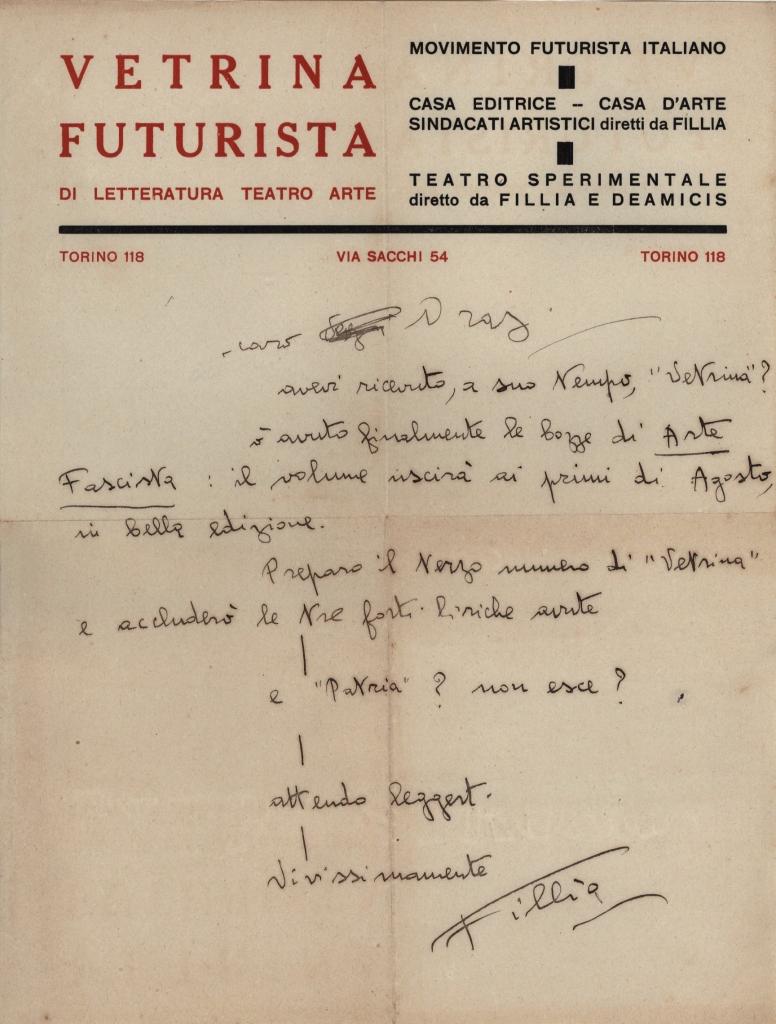 VETRINA
FUTURISTA
DI LETTERATURA TEATRO ARTE
MOVIMENTO FUTURISTA ITALIANO
CASA EDITRICE – CASA D'ARTE
SINDACATI ARTISTICI diretti da FILLIA
TEATRO SPERIMENTALE
diretto da FILLIA E DEAMICIS
TORINO 118 VIA SACCHI 54 TORINO 118
caro
avevi ricevuto, a suo tempo, "Vetrina"?
ò avuto finalmente le bozze di Arte
Fascista : il volume uscirà ai primi di Agosto,
in bella edizione.
Preparo il terzo numero di "Vetrina"
e accluderò le tre forti liriche avute
e "Patria" ? non esce ?
attendo leggerti.
vivissimamente
Fillia